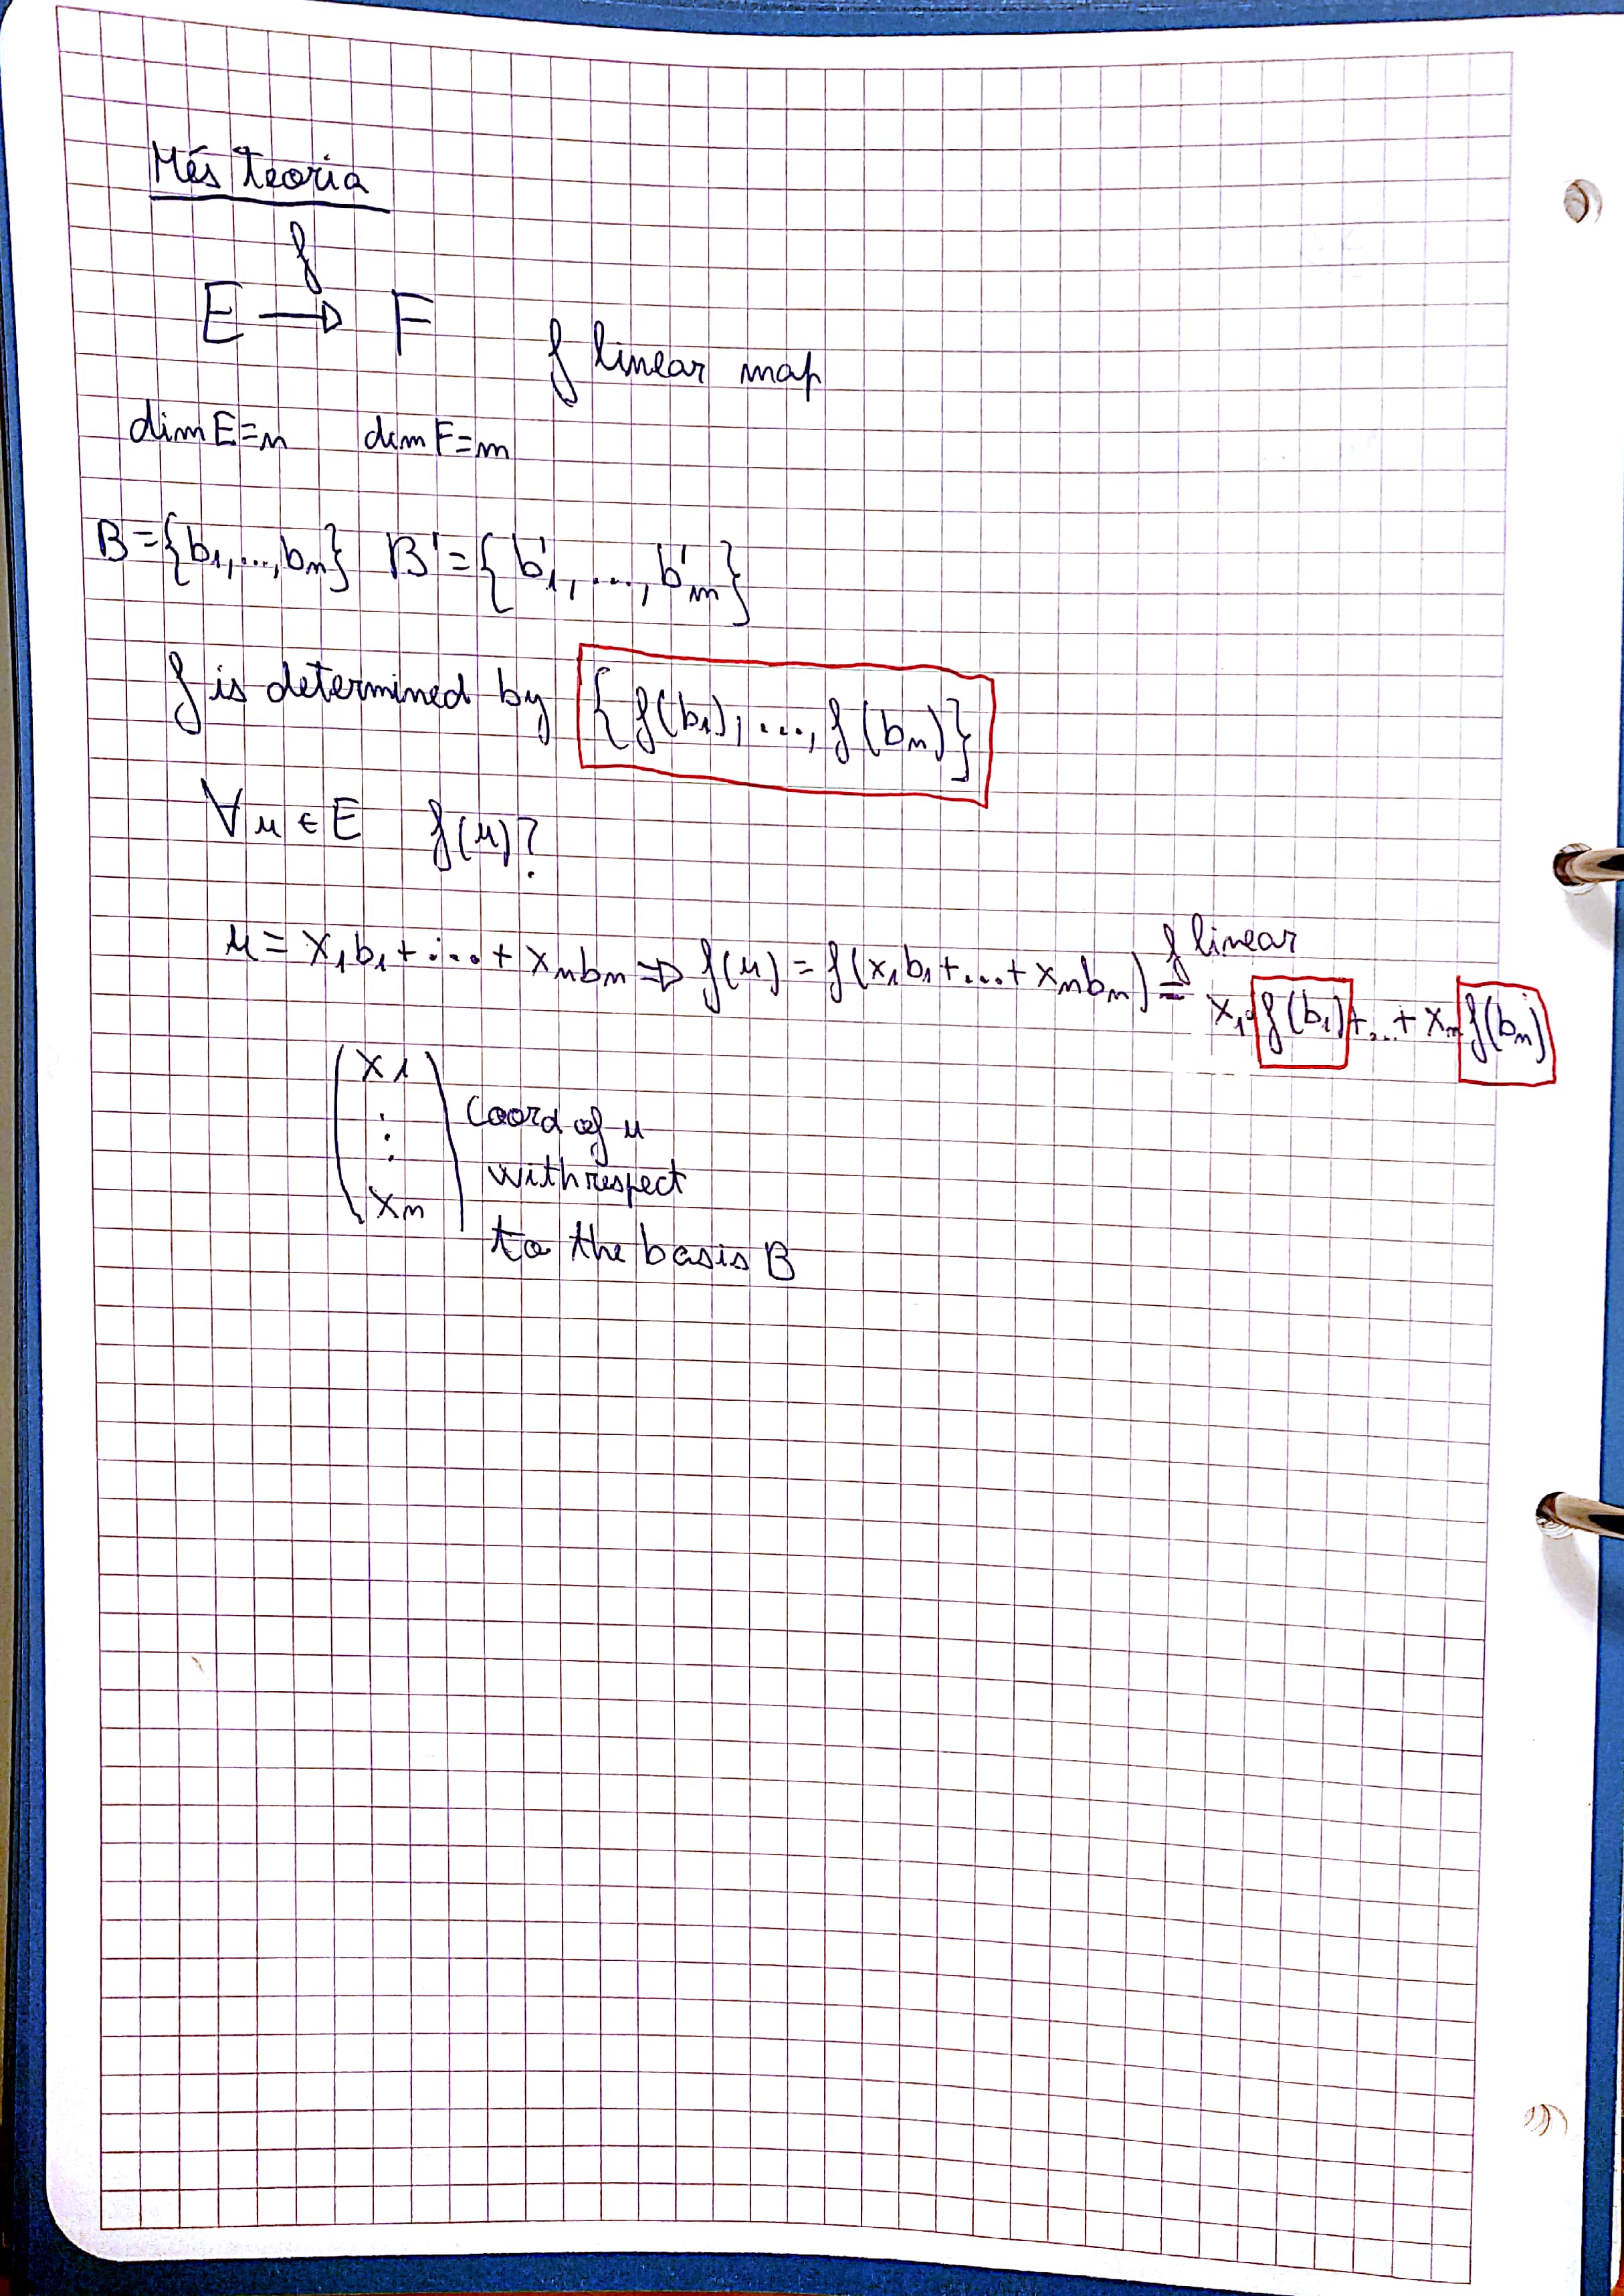 Més teoria
f
E → F
f linear map
dim E=n dim F=m
B={b₁,...,bₙ} B'={b'₁,...,b'ₘ}
f is determined by {f(b₁),...,f(bₙ)}
∀u∈E f(u)?
f linear
u = x₁b₁+...+xₙbₙ ⇒ f(u) = f(x₁b₁+...+xₙbₙ) = x₁·f(b₁)+...+xₙf(bₙ)
(x₁
⋮
xₙ)
Coord of u
with respect
to the basis B